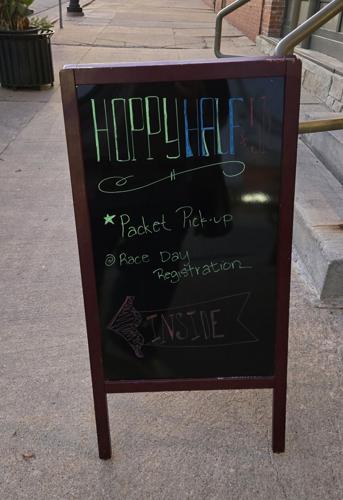 HOPPY HALF
★ Packet Pick-up
@ Race Day
Registration
INSIDE